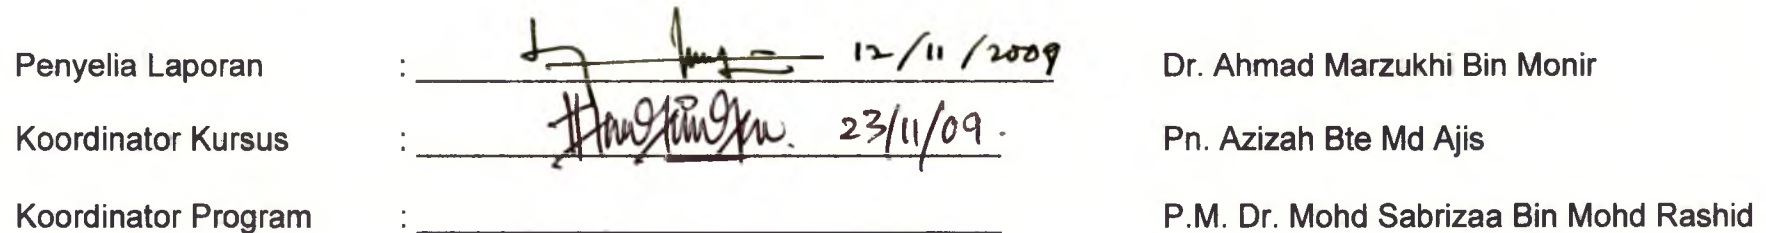 Penyelia Laporan : 12/11/2009 Dr. Ahmad Marzukhi Bin Monir
Koordinator Kursus : 23/11/09. Pn. Azizah Bte Md Ajis
Koordinator Program : P.M. Dr. Mohd Sabrizaa Bin Mohd Rashid